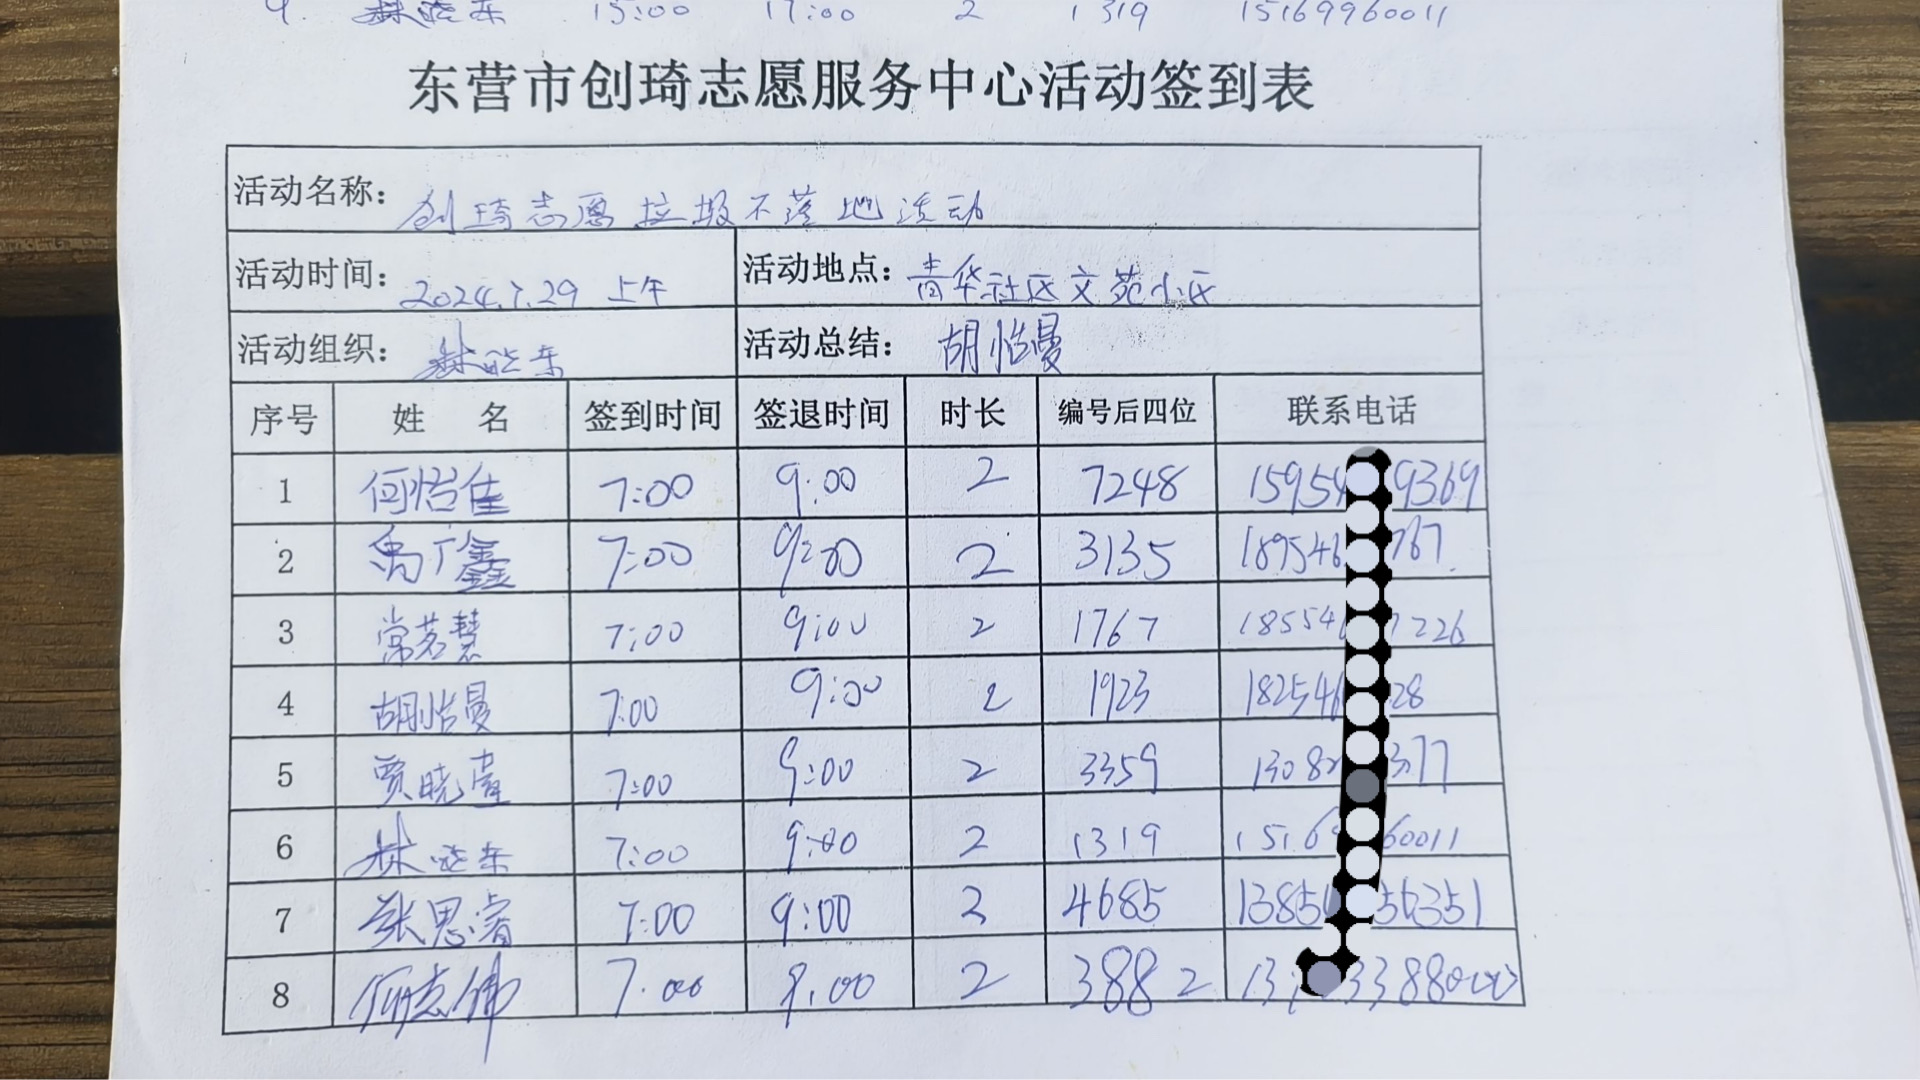 9 林晓东 15:00 17:00 2 1319 15169960011
东营市创琦志愿服务中心活动签到表
活动名称: 创琦志愿垃圾不落地活动
活动时间: 2024.7.29 上午 活动地点: 青华社区文苑小区
活动组织: 林晓东 活动总结: 胡怡曼
序号 姓 名 签到时间 签退时间 时长 编号后四位 联系电话
1 何怡佳 7:00 9:00 2 7248 15954 9369
2 禹广鑫 7:00 9:00 2 3135 189546 767
3 常若慧 7:00 9:00 2 1767 18554 7226
4 胡怡曼 7:00 9:00 2 1923 182546 28
5 贾晓 7:00 9:00 2 3359 1308 377
6 林晓东 7:00 9:00 2 1319 15169 60011
7 张思睿 7:00 9:00 2 4685 1385 56351
8 何志伟 7:00 9:00 2 3882 13 3388000